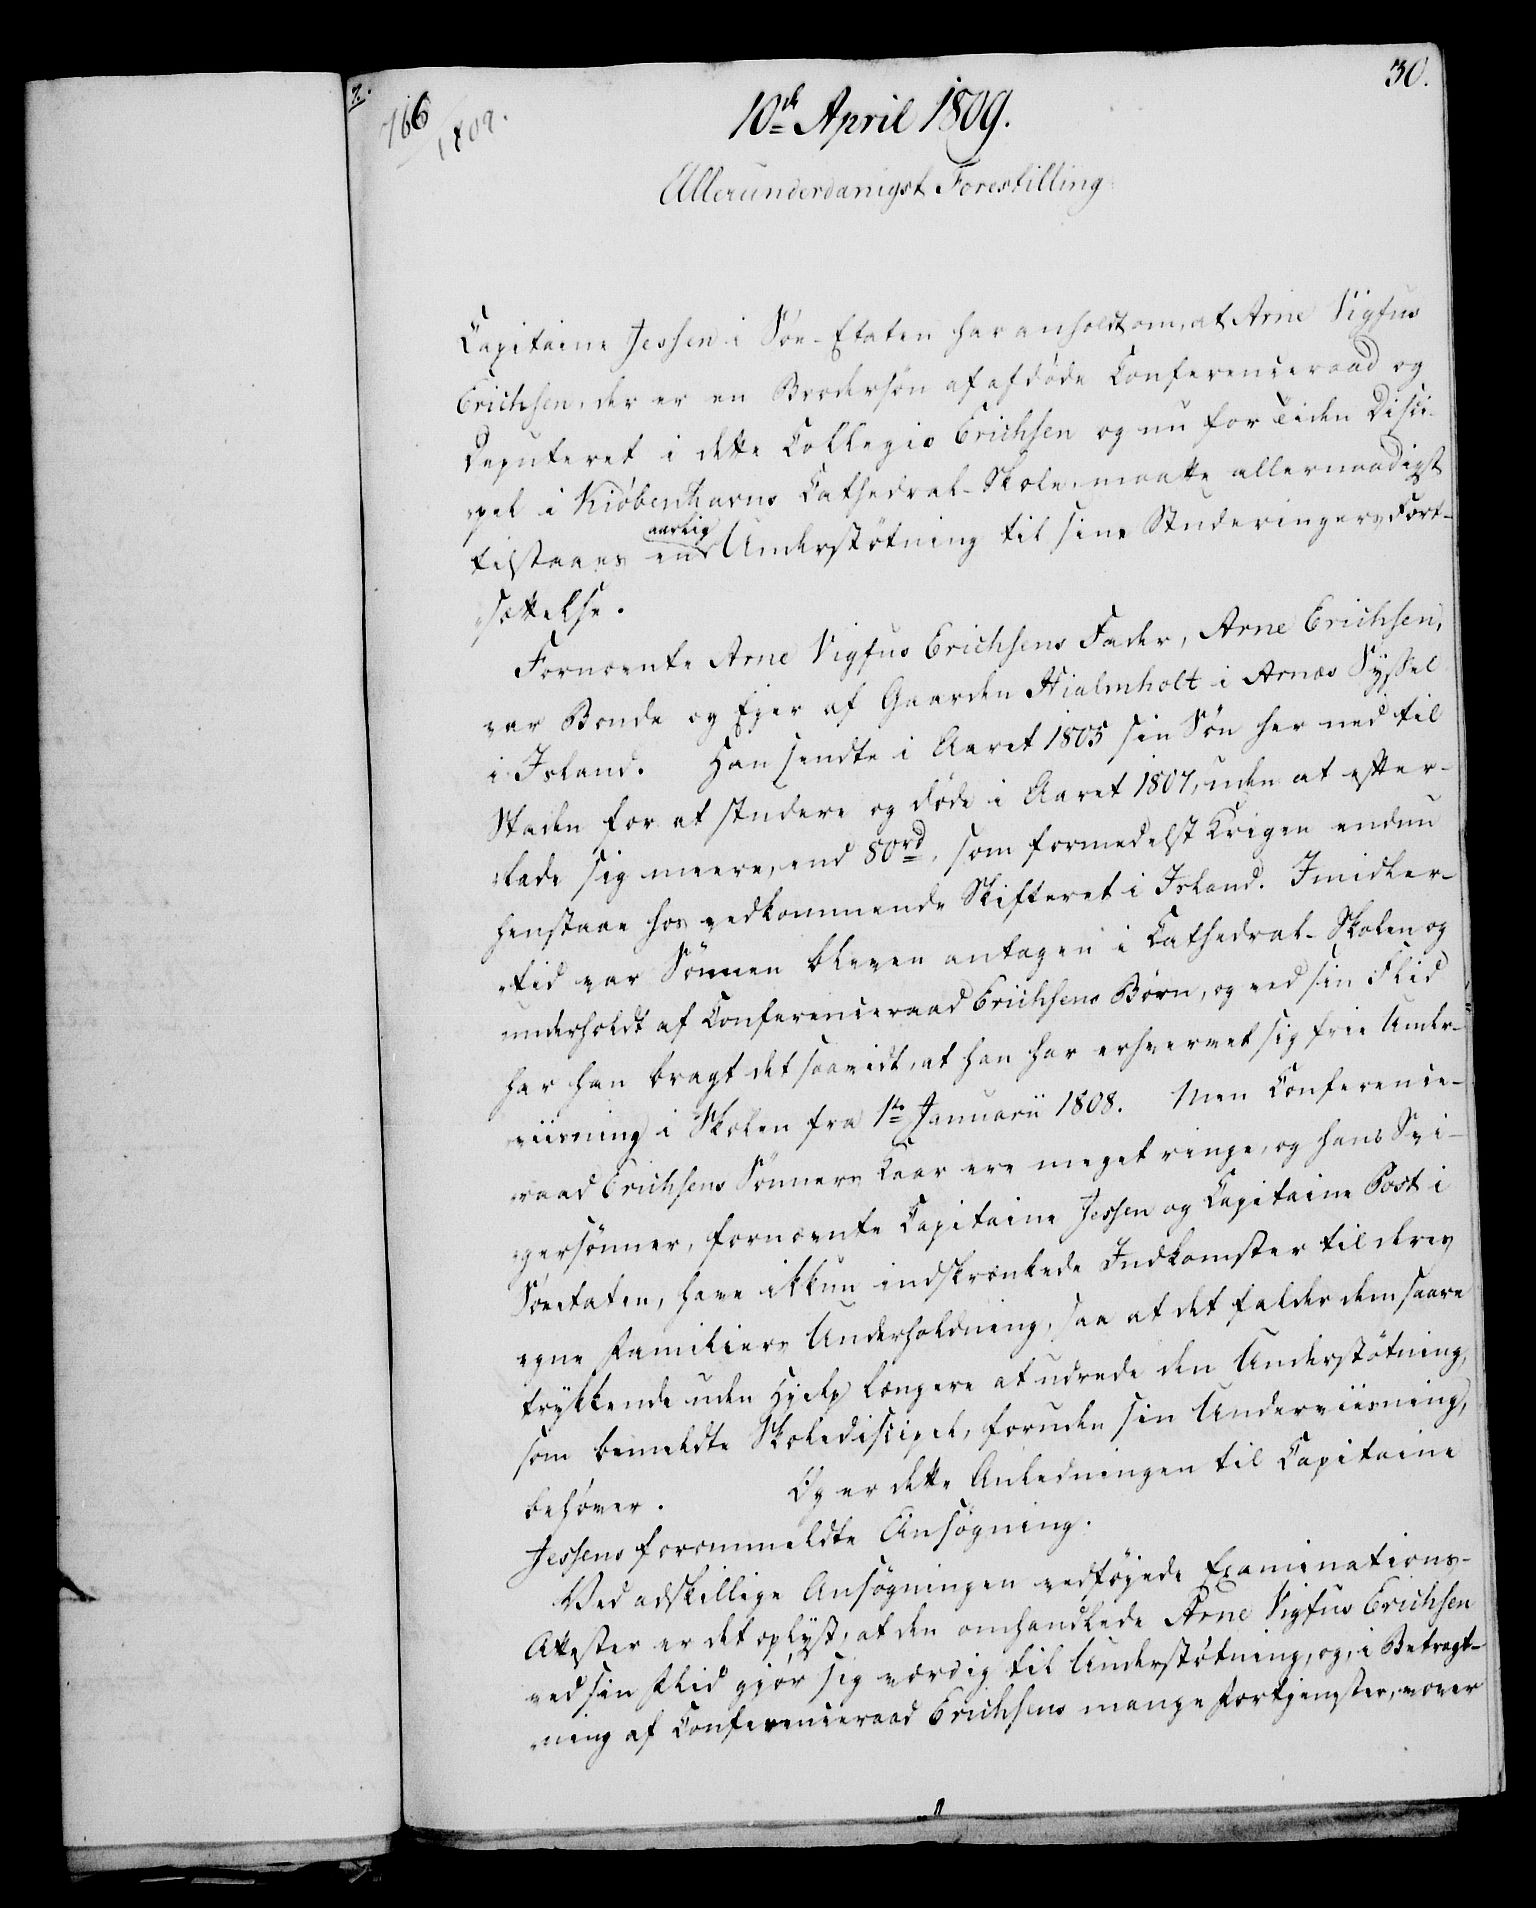 7.
30.
766
1809.
10de April 1809.
Allerunderdanigst Forestilling
Capitaine Jessen i Söe-Etaten har anholdt om, at Arne Vigfus
Erichsen, der er en Brodersön af afdöde Conferenceraad og
Deputeret i dette Collegio Erichsen og nu for Tiden Disci-
pel i Kiöbenhavns Cathedral-Skole, maatte allernaadigst
aarlig
tilstaaes en Understötning til sine Studeringers Fort-
sættelse.
Fornævnte Arne Vigfus Erichsens Fader, Arne Erichsen,
var Bonde og Ejer af Gaarden Hialmholt i Arnæs Syssel
i Island. Han sendte i Aaret 1805 sin Sön her ned til
Staden for at studere og döde i Aaret 1807, uden at efter-
lade sig meere, end 80 rd, som formedelst Krigen endnu
henstaae hos vedkommende Skifteret i Island. Imidler-
tid var Sönnen bleven antagen i Cathedral-Skolen og
underholdt af Conferenceraad Erichsens Börn, og ved sin Flid
har han bragt det saavidt, at han har erhvervet sig frie Under-
viisning i Skolen fra 1te Januarii 1808. Men Conference-
raad Erichsens Sönners Kaar ere meget ringe, og hans Svi-
gersönner, fornævnte Capitaine Jessen og Capitaine Post i
Söeetaten, have ikkun indskrænkede Indkomster til deres
egne Familiers Underholdning, saa at det falder dem saare
trykkende uden Hjelp længere at udrede den Understötning,
som bemeldte Skolediscipel, foruden sin Underviisning,
behöver. Og er dette Anledningen til Capitaine
Jessens forommeldte Ansögning.
Ved adskillige Ansögningen vedföjede Examinations-
Attester er det oplyst, at den omhandlede Arne Vigfus Erichsen
ved sin Flid gjör sig værdig til Understötning, og, i Betragt-
ning af Conferenceraad Erichsens mange Fortjenester, vover